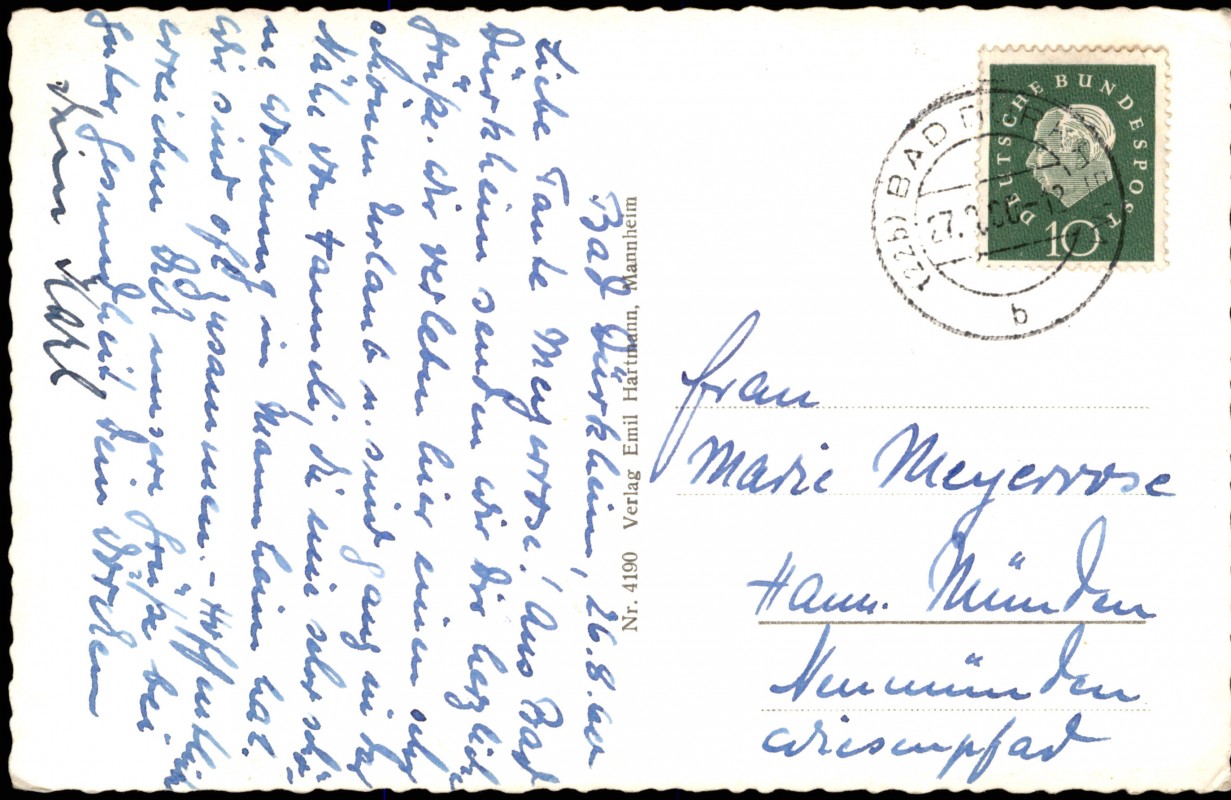 Bad Dürkheim, 26.8.60
Liebe Tante Meyerrose! Aus Bad
Dürkheim senden wir Dir herzliche
Grüße. Wir verleben hier einen sehr
schönen Urlaub u. sind ganz in der
Nähe von Hanneli, die eine sehr schö-
ne Wohnung in Mannheim hat.
Wir sind oft zusammen. - Hoffentlich
erreichen Dich unsere Grüße bei
guter Gesundheit. Dein
Dein Karl
Nr. 4190 Verlag Emil Hartmann, Mannheim
DEUTSCHE BUNDESPOST
10
(22b) BAD
27.
b
Frau
Marie Meyerrose
Hann. Münden
Neumünden
Wiesenpfad